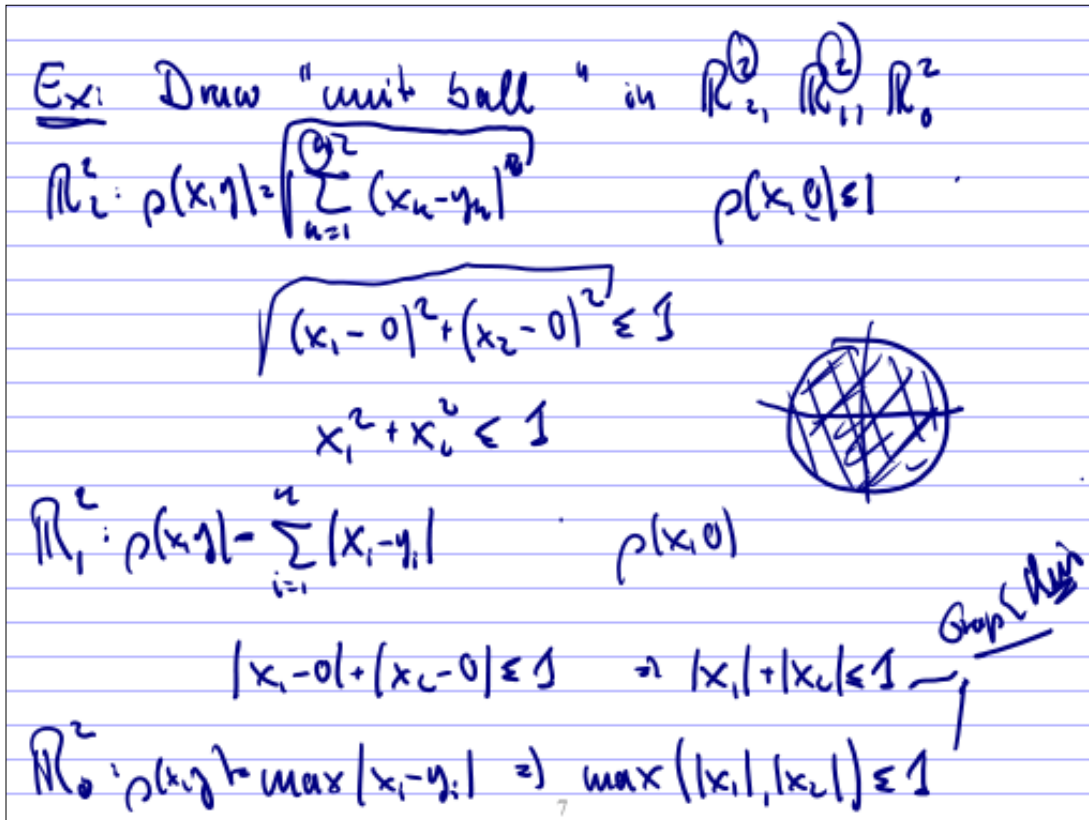 Ex: Draw "unit ball" in ℝ²₂, ℝ²₁, ℝ²₀
ℝ²₂: ρ(x,y) = √(∑ₖ₌₁² (xₖ-yₖ)²) ρ(x,0) ≤ 1
√((x₁-0)² + (x₂-0)²) ≤ 1
x₁² + x₂² ≤ 1
ℝ²₁: ρ(x,y) = ∑ᵢ₌₁ⁿ |xᵢ-yᵢ| ρ(x,0)
|x₁-0| + |x₂-0| ≤ 1 ⇒ |x₁| + |x₂| ≤ 1
ℝ²₀: ρ(x,y) = max |xᵢ-yᵢ| ⇒ max(|x₁|, |x₂|) ≤ 1
7